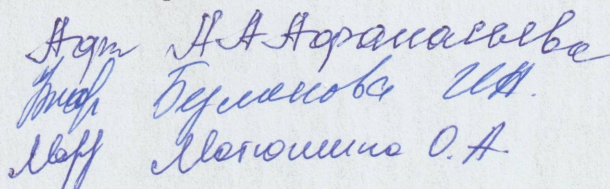 А А Афанасьева
Буланова И.А.
Матюшина О.А.